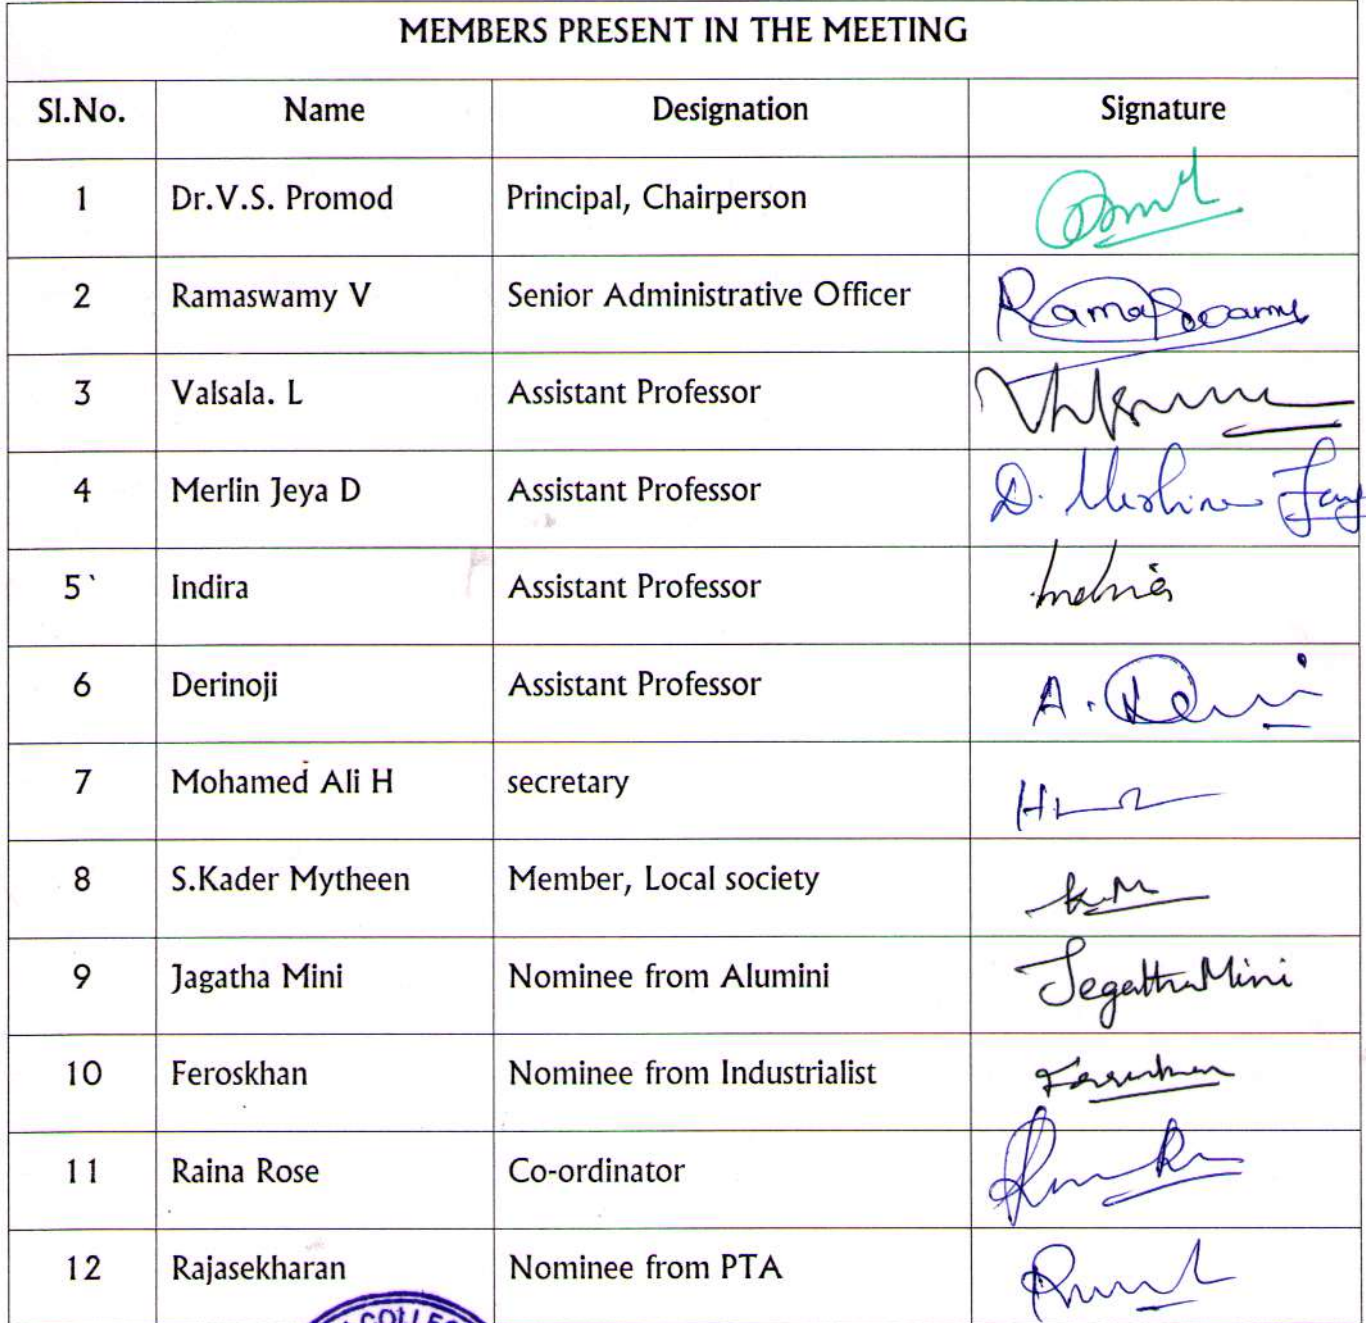 MEMBERS PRESENT IN THE MEETING
Sl.No. Name Designation Signature
1 Dr.V.S. Promod Principal, Chairperson
2 Ramaswamy V Senior Administrative Officer Ramaswamy
3 Valsala. L Assistant Professor
4 Merlin Jeya D Assistant Professor D.
5` Indira Assistant Professor Indira
6 Derinoji Assistant Professor A.
7 Mohamed Ali H secretary
8 S.Kader Mytheen Member, Local society K.M
9 Jagatha Mini Nominee from Alumini Jegatha Mini
10 Feroskhan Nominee from Industrialist
11 Raina Rose Co-ordinator
12 Rajasekharan Nominee from PTA